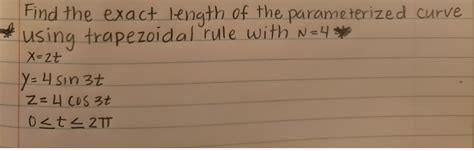 Find the exact length of the parameterized curve
* using trapezoidal rule with N=4 *
X=2t
y=4 sin 3t
Z=4 cos 3t
0≤t≤2π